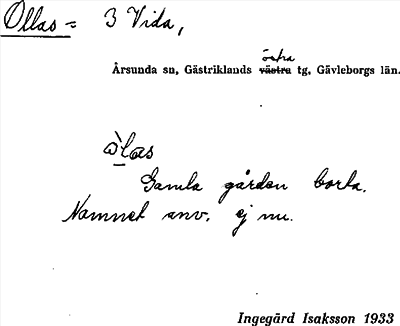 Ollas = 3 Vida,
östra
Årsunda sn, Gästriklands västra tg, Gävleborgs län.
ò̱las
Gamla gården borta.
Namnet anv. ej nu.
Ingegärd Isaksson 1933